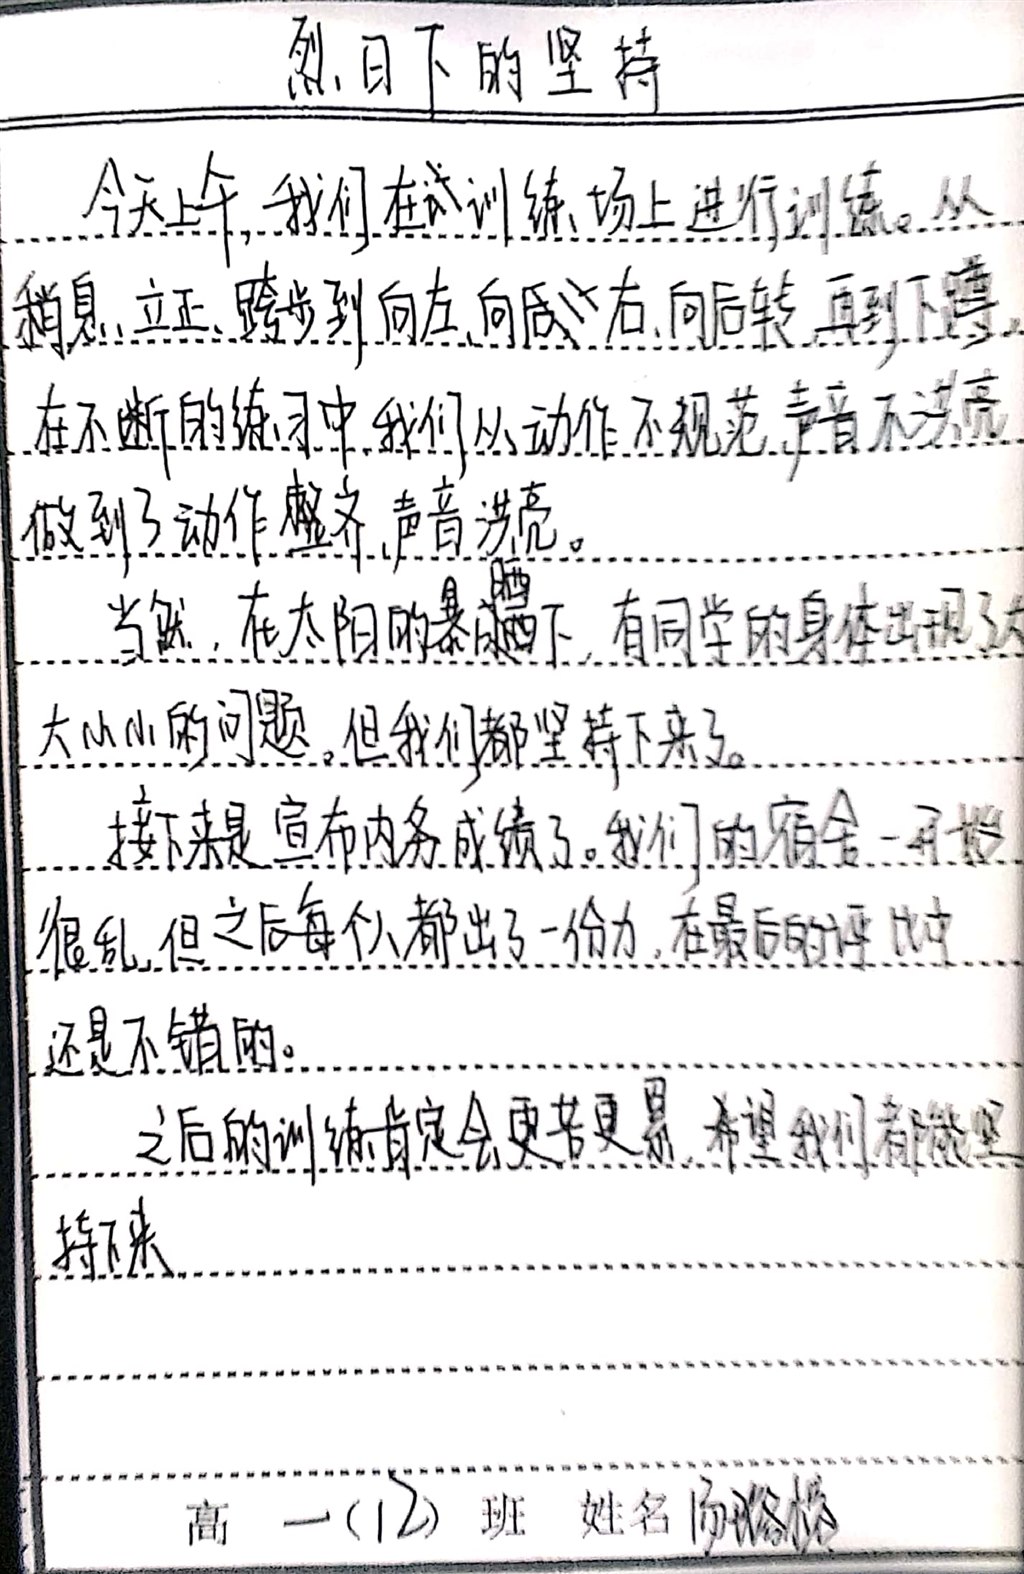 烈日下的坚持
今天上午,我们在训练场上进行训练。从
稍息、立正、跨步到向左、向右、向后转,再到下蹲,
在不断的练习中,我们从动作不规范,声音不洪亮
做到了动作整齐,声音洪亮。
当然,在太阳的暴晒下,有同学的身体出现了大
大小小的问题。但我们都坚持下来了。
接下来是宣布内务成绩了。我们的宿舍一开始
很乱,但之后每个人都出了一份力,在最后的评比中
还是不错的。
之后的训练肯定会更苦更累,希望我们都能坚
持下来
高一(12)班 姓名